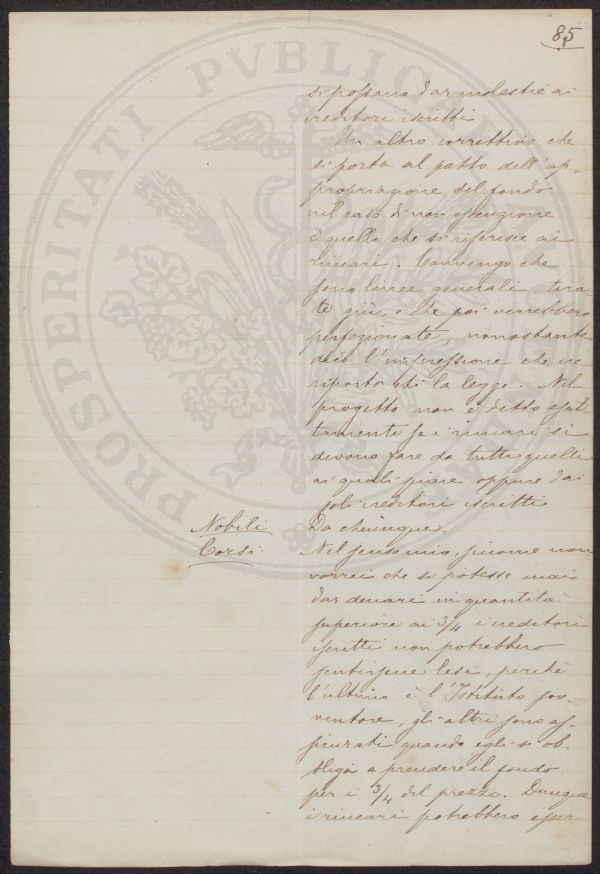 85
si possano dar molestie ai
creditori iscritti
Un altro correttivo che
si porta al patto dell'ap-
propriazione del fondo
nel caso di non esecuzione
è quello che si riferisce ai
rincari. Convengo che
sono linee generali tira-
te giù, e che poi verrebbero
perfezionate, nonostante
dico l'impressione che ne
riporta chi la legge. Nel
progetto non è detto esat-
tamente se i rincari si
devono fare da tutti quelli
ai quali piace oppure dai
soli creditori iscritti
Nobili
Da chiunque.
Corsi
Nel senso mio, siccome non
vorrei che si potesse mai
dar denari in quantità
superiore ai 3/4 i creditori
iscritti non potrebbero
sentirsene lesi, perchè
l'ultimo è l'Istituto sov-
ventore, gli altri sono as-
sicurati quando egli si ob-
bliga a prendere il fondo
per i 3/4 del prezzo. Dunque
i rincari potrebbero esser
PROSPERITATI PVBLICAE